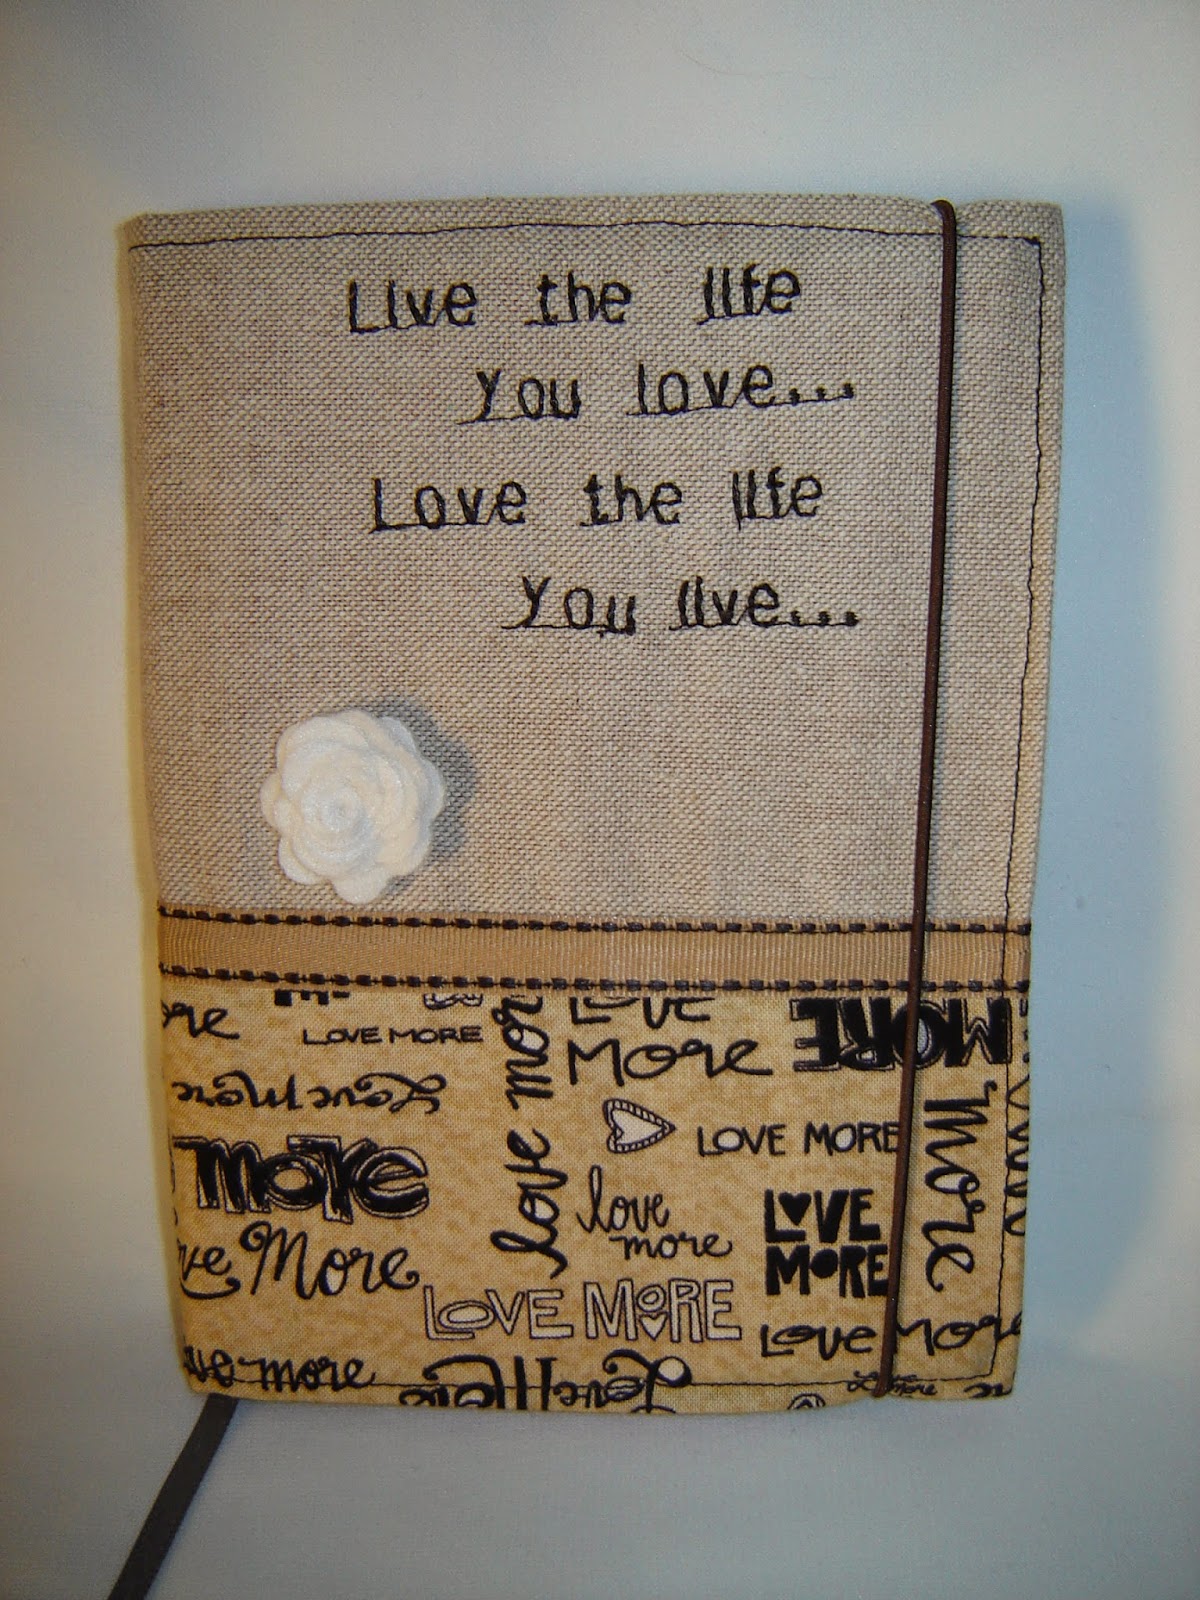 Live the life
you love...
Love the life
you live...
ore
LOVE MORE
love more
LOVE
More
MORE
Love More
LOVE MORE
more
More
love
more
LOVE
MORE
ve More
LOVE MORE
Love More
ve more
Love More
Love
more